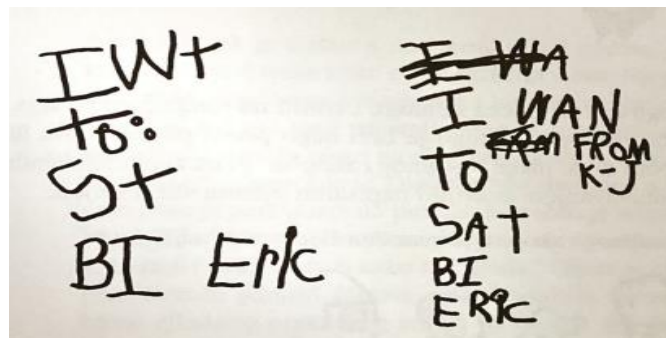 I Wt
To:
St
BI Eric
I WA
I WAN
TO FROM
K-J
SAT
BI
ERIC